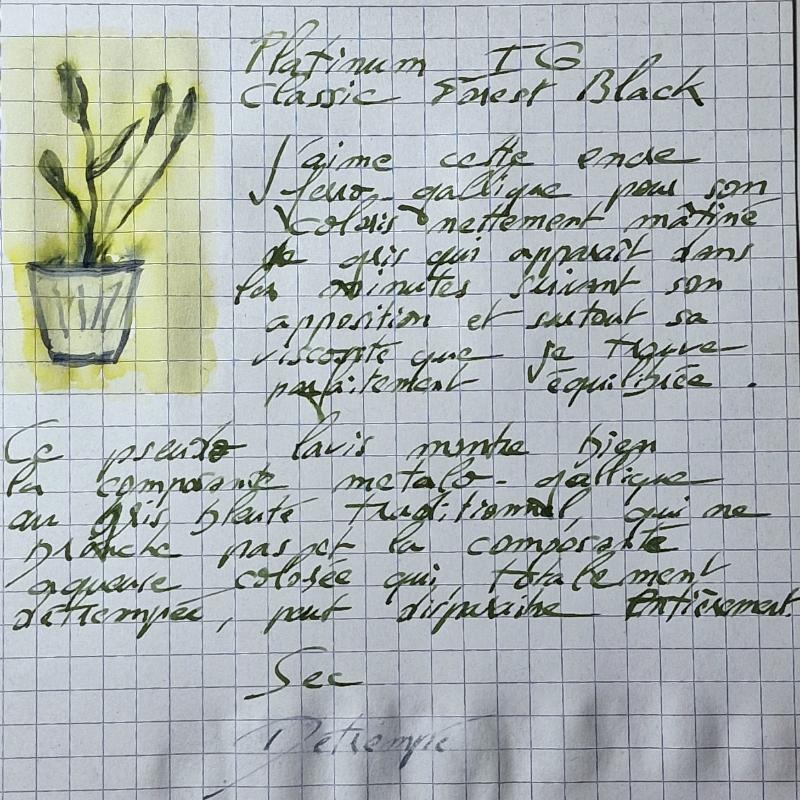 Platinum IG
Classic Forest Black
J'aime cette encre
ferro-gallique pour son
coloris nettement mâtiné
de gris qui apparaît dans
les minutes suivant son
apposition et surtout sa
viscosité que je trouve
parfaitement équilibrée.
Ce pseudo lavis montre bien
la composante metalo-gallique
au gris bleuté traditionnel, qui ne
bronche pas et la composante
aqueuse colorée qui, totalement
détrempée, peut disparaitre entièrement.
Sec
Détrempé